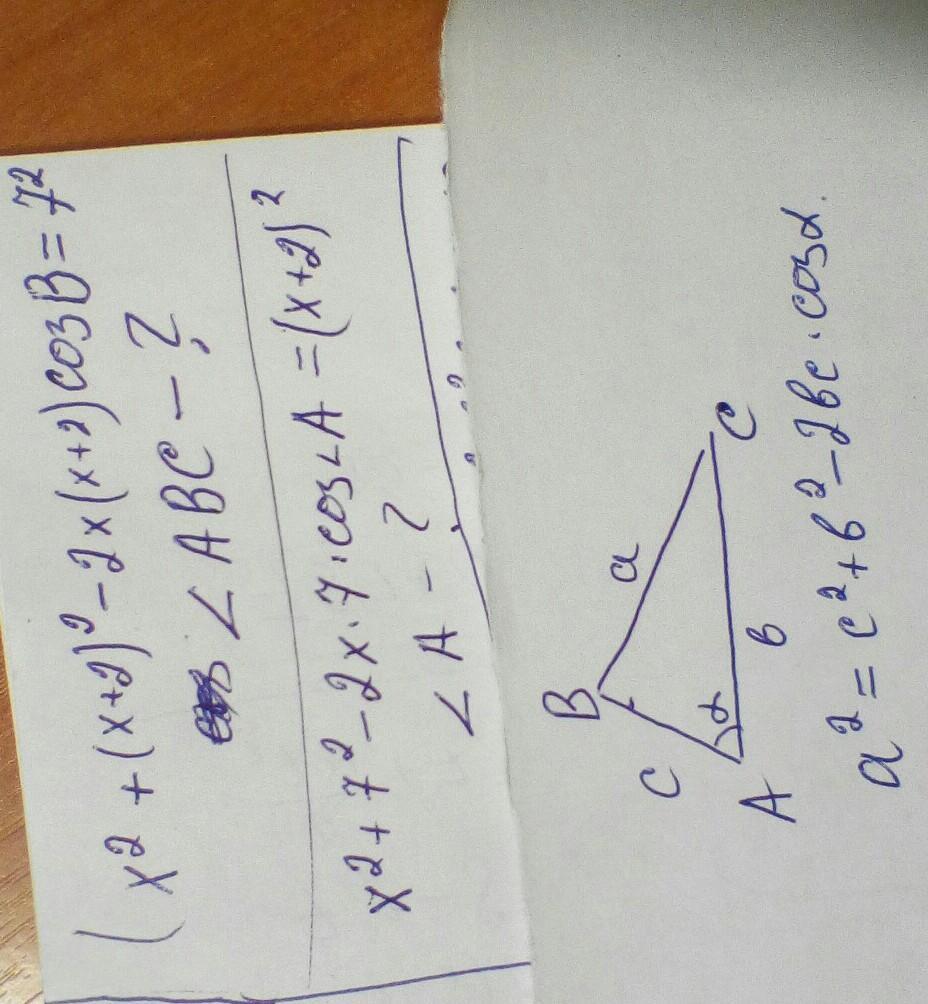 x² + (x+2)² - 2x(x+2)cosB = 7²
∠ABC - ?
x² + 7² - 2x·7·cos∠A = (x+2)²
∠A - ?
B
c a
α
A b C
a² = c² + b² - 2bc·cosα.